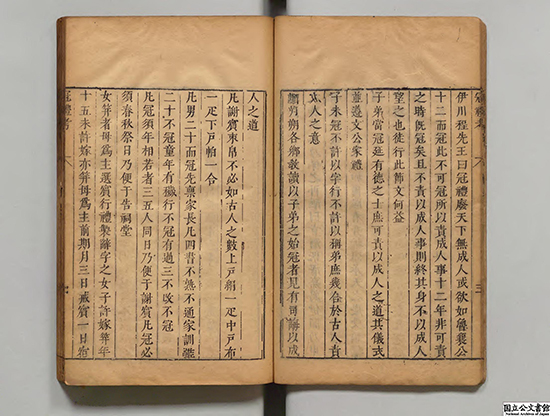 冠禮考
伊川程先生曰冠禮廢天下無成人或欲如魯襄公
十二而冠此不可冠所以責成人事十二年非可責
之時旣冠矣且不責以成人事則終其身不以成人
望之也徒行此節文何益
子弟當冠延有德之士庶可責以成人之道其儀式
並遵文公家禮
子未冠不許以字行不許以稱弟庶幾合於古人責
成人之意
朔各鄉敎讀以子弟之始冠者見有司誨以成
人之道
凡謝賓束帛不必如古人之數上戶絹一疋中戶布
一疋下戶帕一令
凡男二十而冠先稟家長凡四書不熟不通家訓
二十不冠童年有穢行不冠有過三不攺不冠
凡冠須年相若者三五人同日乃便于謝賓凡冠必
須春秋祭日乃便于告祠堂
女笄者母爲主選賓行禮製辭字之女子許嫁笄年
十五未許嫁亦笄母爲主前期月三日戒賓一日宿
冠禮考
國立公文書館
National Archives of Japan